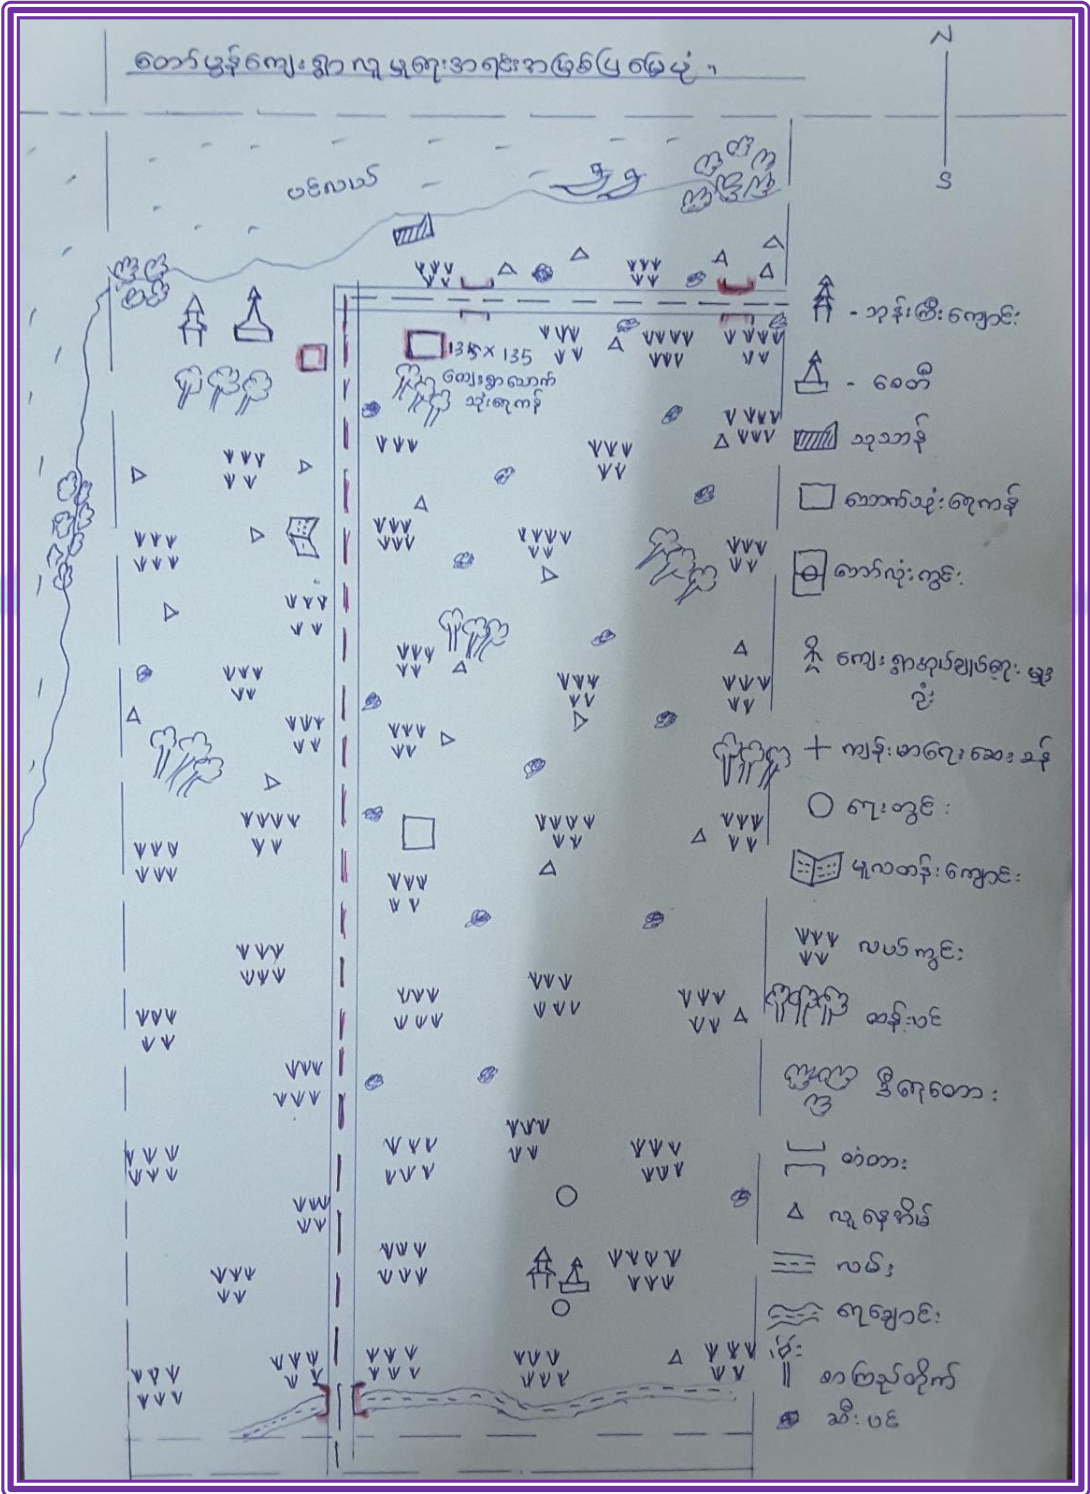 တော်ပွန်ကျေးရွာ လူမှုရေးအရင်းအမြစ်ပြ မြေပုံ ။
N
S
ပင်လယ်
135 x 135
ကျေးရွာသောက်
သုံးရေကန်
- ဘုန်းကြီးကျောင်း
- စေတီ
သုသာန်
သောက်သုံးရေကန်
ဘော်လုံးကွင်း
ကျေးရွာအုပ်ချုပ်ရေးမှူး
ရုံး
ကျန်းမာရေးဆေးခန်း
ရေတွင်း
မူလတန်းကျောင်း
လယ်ကွင်း
ထန်းပင်
ဒီရေတော
တံတား
လူနေအိမ်
လမ်း
ရေချောင်း
စာကြည့်တိုက်
ဆီးပင်